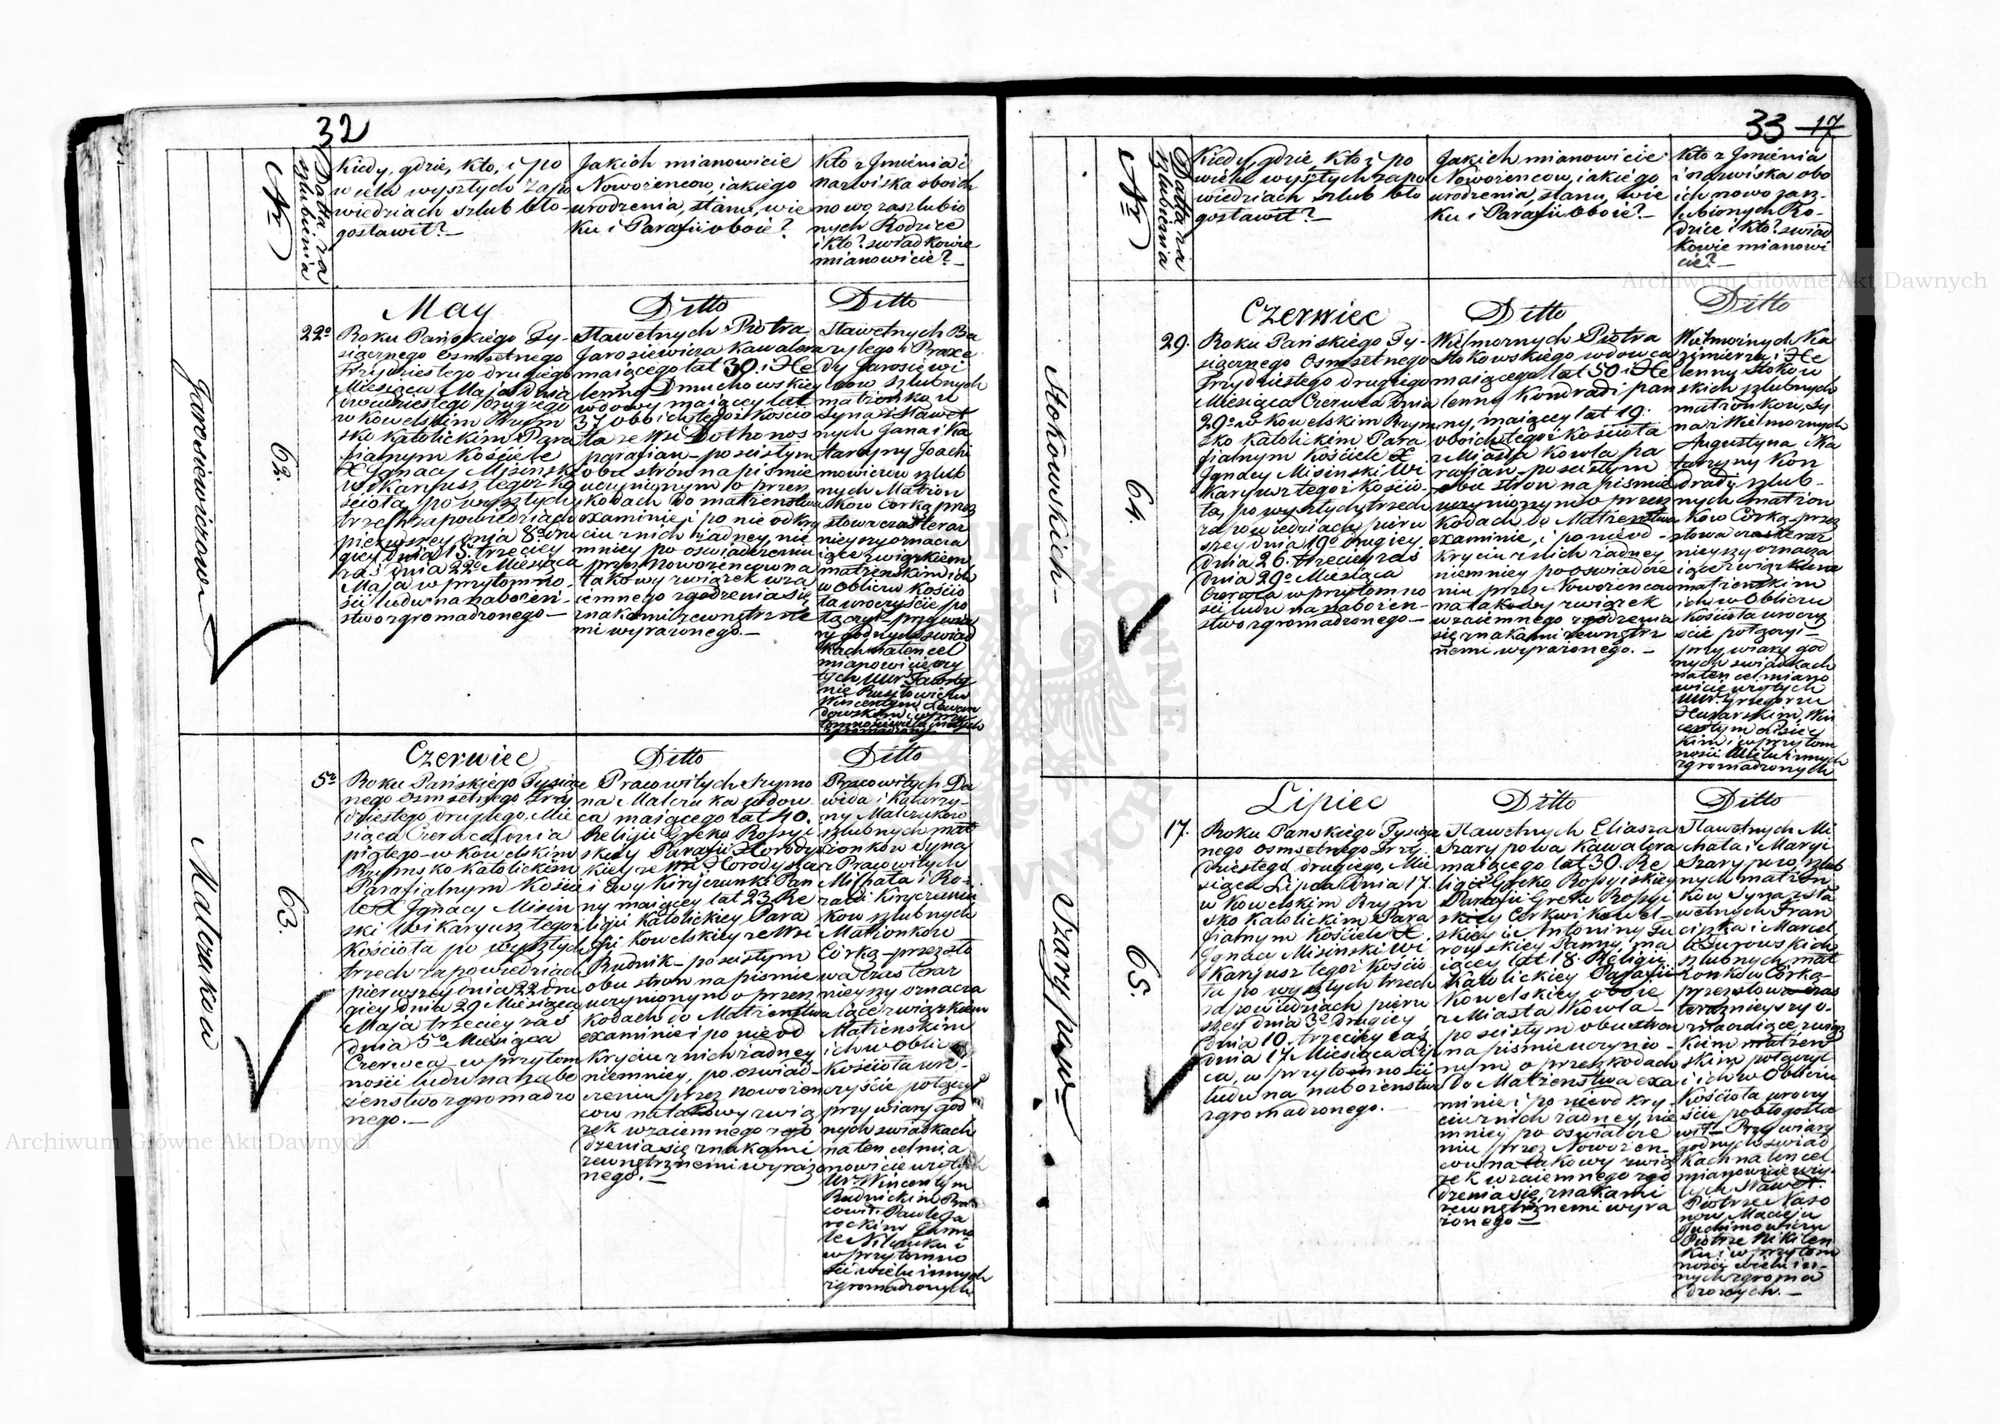 32
Nr
Datta za
szlubienia
Kiedy, gdzie, kto, i po
wielu wyszłych zapo
wiedziach szlub bło-
gosławił?
Jakich mianowicie
Nowożencow, iakiego
urodzenia, stanu, wie
ku i Parafii oboie?
Kto z Jmienia i
nazwiska oboich
nowo zaszlubio
nych Rodzice
i kto? swiadkowie
mianowicie?
Jarosiewiczow
62.
22º
May
Roku Pańskiego Ty-
siącznego osmsetnego
trzydziestego drugiego
Miesiąca Maja dnia
dwudziestego drugiego
w Kowelskim Rzym
sko Katolickim Para
fialnym Kościele
X Jgnacy Misinski
Wikaryusz tegoż Ko
scioła, po wyszłych
trzech zapowiedziach
pierwszey dnia 8º dru
giey dnia 15. trzeciey
zaś dnia 22º Miesiąca
Maja w przytomno-
ści ludu na nabożen-
stwo zgromadzonego
Ditto
Sławetnych Piotra
Jarosiewicza Kawalera
maiącego lat 30. i He
lenny Dmuchowskiey
wdowy maiącey lat
37 oboich tegoż kościo
ła ze Wsi Dothonos
parafian po ścisłym
obu strón na piśmie
uczynionym o przesz
kodach do matżenstwa
examinie, i po nie odkry
ciu z nich żadney, nie
mniey po oswiadczeniu
przez Nowożencow na
takowy związek wza
iemnego zgodzenia się
znakami zewnętrzne
mi wyrażonego.
Ditto
Sławetnych Ba
zylego i Praxe
dy Jarosiewi
czow szlubnych
matżonkow
Syna z Sławet
nych Jana i Ka
tarzyny Joachi
mowiczow szlub
nych Matżon
kow Córką przez
słowa czas teraz
nieyszy oznacza
iące związkiem
matżenskim ich
w Obliczu Koscio
ła uroczyście po
łączył przy wia
ry godnych swiad
kach na ten cel
mianowicie wzy
tych
Wincentym Lewan
dowskim i w przy
tomności wielu innych
zgromadzonych
Malczukow
63.
5º
Czerwiec
Roku Pańskiego Tysiącz
nego osmsetnego trzy
dziestego drugiego, Mie
siąca Czerwca dnia
piątego w Kowelskim
Rzymsko Katolickim
Parafialnym Kościo
le X Jgnacy Misin
ski Wikaryusz tegoż
Kościoła po wyszłych
trzech zapowiedziach
pierwszey dnia 22 dru
giey dnia 29 Miesiąca
Maja trzeciey zaś
dnia 5º Miesiąca
Czerwca w przytom
ności ludu na nabo
żenstwo zgromadzo
nego.
Ditto
Pracowitych Szymo
na Malczuka wdow
ca maiącego lat 40.
Religii Greko Rossyi
skiey Parafii Horody
skiey ze Wsi Horodyszcz
i Ewy Kiryczunki Pan
ny maiącey lat 23 Re
ligii Katolickiey Para
fii Kowelskiey ze Wsi
Rudnik po ścisłym
obu stron na piśmie
uczynionym o przesz
kodach do Matżenstwa
examinie i po nie od
kryciu z nich żadney
niemniey, po oswiad-
czeniu przez nowożen
cow na takowy zwią
zek wzaiemnego zgo
dzenia się znakami
zewnętrznemi wyrażo
nego.
Ditto
Pracowitych Da
wida i Katarzy-
ny Malczukow
szlubnych mat
żonków Syna
z Pracowitych
Michała i Ro-
zalii Kiryczuni
ków szlubnych
Matżonkow
Córką przez sło
wa czas teraz
nieyszy oznacza
iące związkiem
Matżenskim
ich w Obliczu
Kościoła uro-
czyście połączył
przy wiary god
nych swiadkach
na ten cel mia
nowicie wzytych
Wincentym
Rudnickim Pra
cowit: Pawle Ja
rockim
i
w przytomno
ści wielu innych
zgromadzonych.
33 17
Nr
Datta za
szlubienia
Kiedy, gdzie, kto i po
wielu wyszłych zapo
wiedziach szlub bło
gosławił?
Jakich mianowicie
Nowożencow, iakiego
urodzenia, stanu, wie
ku i Parafii oboie?
Kto z Jmienia
i nazwiska obo
ich nowo zasz-
lubionych Ro-
dzice i kto? swiad
kowie mianowi
cie?
Stokowskich
64.
29.
Czerwiec
Roku Pańskiego Ty-
siącznego Osmsetnego
trzydziestego drugiego
Miesiąca Czerwca dnia
29º w Kowelskim Rzym
sko Katolickim Para
fialnym Kościele X
Jgnacy Misinski Wi
karyusz tegoż Kościo-
ła, po wyszłych trzech
zapowiedziach, pierw
szey dnia 19º drugiey
dnia 26. trzeciey zaś
dnia 29º Miesiąca
Czerwca w przytomno
ści ludu na nabożen-
stwo zgromadzonego.
Ditto
Wielmożnych Piotra
Stokowskiego wdowca
maiącego lat 50 i He
lenny Kondradi pan
ny, maiącey lat 19.
oboich tegoż Kościoła
z Miasta Kowla pa
rafian po ścisłym
obu stron na piśmie
uczynionym o przesz
kodach do Matżenstwa
examinie, i po nieod-
kryciu z nich żadney
niemniey po oswiadcze
niu przez Nowożencow
na takowy związek
wzaiemnego zgodzenia
się znakami zewnętrz
nemi wyrażonego.
Ditto
Wielmożnych Ka
zimierza i He
lenny Stokow
skich szlubnych
matżonkow, Sy
na z Wielmożnych
Augustyna i Ka
tarzyny Kon
drady szlub-
nych matżon
kow Córką przez
słowa czas teraz
nieyszy oznacza
iące związkiem
matżenskim
ich w Obliczu
Kościoła uroczy
scie połączył
przy wiary god
nych swiadkach
na ten cel miano
wicie wzytych
WW. Grzegorzu
Husarskim, Win
centym Lisiec
kim i w przytom
ności wielu innych
zgromadzonych
Szarypow
65.
17.
Lipiec
Roku Pańskiego Tysiącz
nego osmsetnego trzy
dziestego drugiego, Mie
siąca Lipca dnia 17.
w Kowelskim Rzym
sko Katolickim Para
fialnym Kościele X.
Jgnacy Misinski Wi
karyusz tegoż Kościo
ła po wyszłych trzech
zapowiedziach pierw
szey dnia 3º drugiey
dnia 10. trzeciey zaś
dnia 17. Miesiąca Lip
ca, w przytomności
ludu na nabożenstwo
zgromadzonego.
Ditto
Sławetnych Eliasza
Szarypowa Kawalera
maiącego lat 30. Re
ligii Greko Rossyiskiey
Parafii Greko Rossyi
skiey Cerkwi Kowel-
skiey i Antoniny Gu
rowskiey Panny, ma
iącey lat 18. Religii
Katolickiey Parafii
Kowelskiey oboie
z Miasta Kowla
po ścisłym obu stron
na piśmie uczynio-
nym o przeszkodach
do Matżenstwa exa
minie i po nieodkry
ciu z nich żadney, nie
mniey po oswiadcze
niu przez Nowożen-
cow na takowy zwią
zek wzaiemnego zgo
dzenia się, znakami
zewnętrznemi wyra
żonego
Ditto
Sławetnych Mi
chała i Maryi
Szarypow, szlub
nych matżon
kow Syna z Sła
wetnych Fran
ciszka i Marcel
li Gurowskich
szlubnych mat
żonkow Córką
przez słowa czas
teraznieyszy o-
znacaiące związ
kiem matżen
skim połączył
i ich w Obliczu
Kościoła uroczy
ście pobłogosła
wił Przy wiary
godnych swiad
kach na ten cel
mianowicie wzy-
tych Sławet:
Piotrze Naza
now, Macieju
Juchimowiczu
Piotrze Nikiten
ku i w przytom
ności wielu in-
nych zgroma
dzonych.
Archiwum Główne Akt Dawnych
Archiwum Główne Akt Dawnych